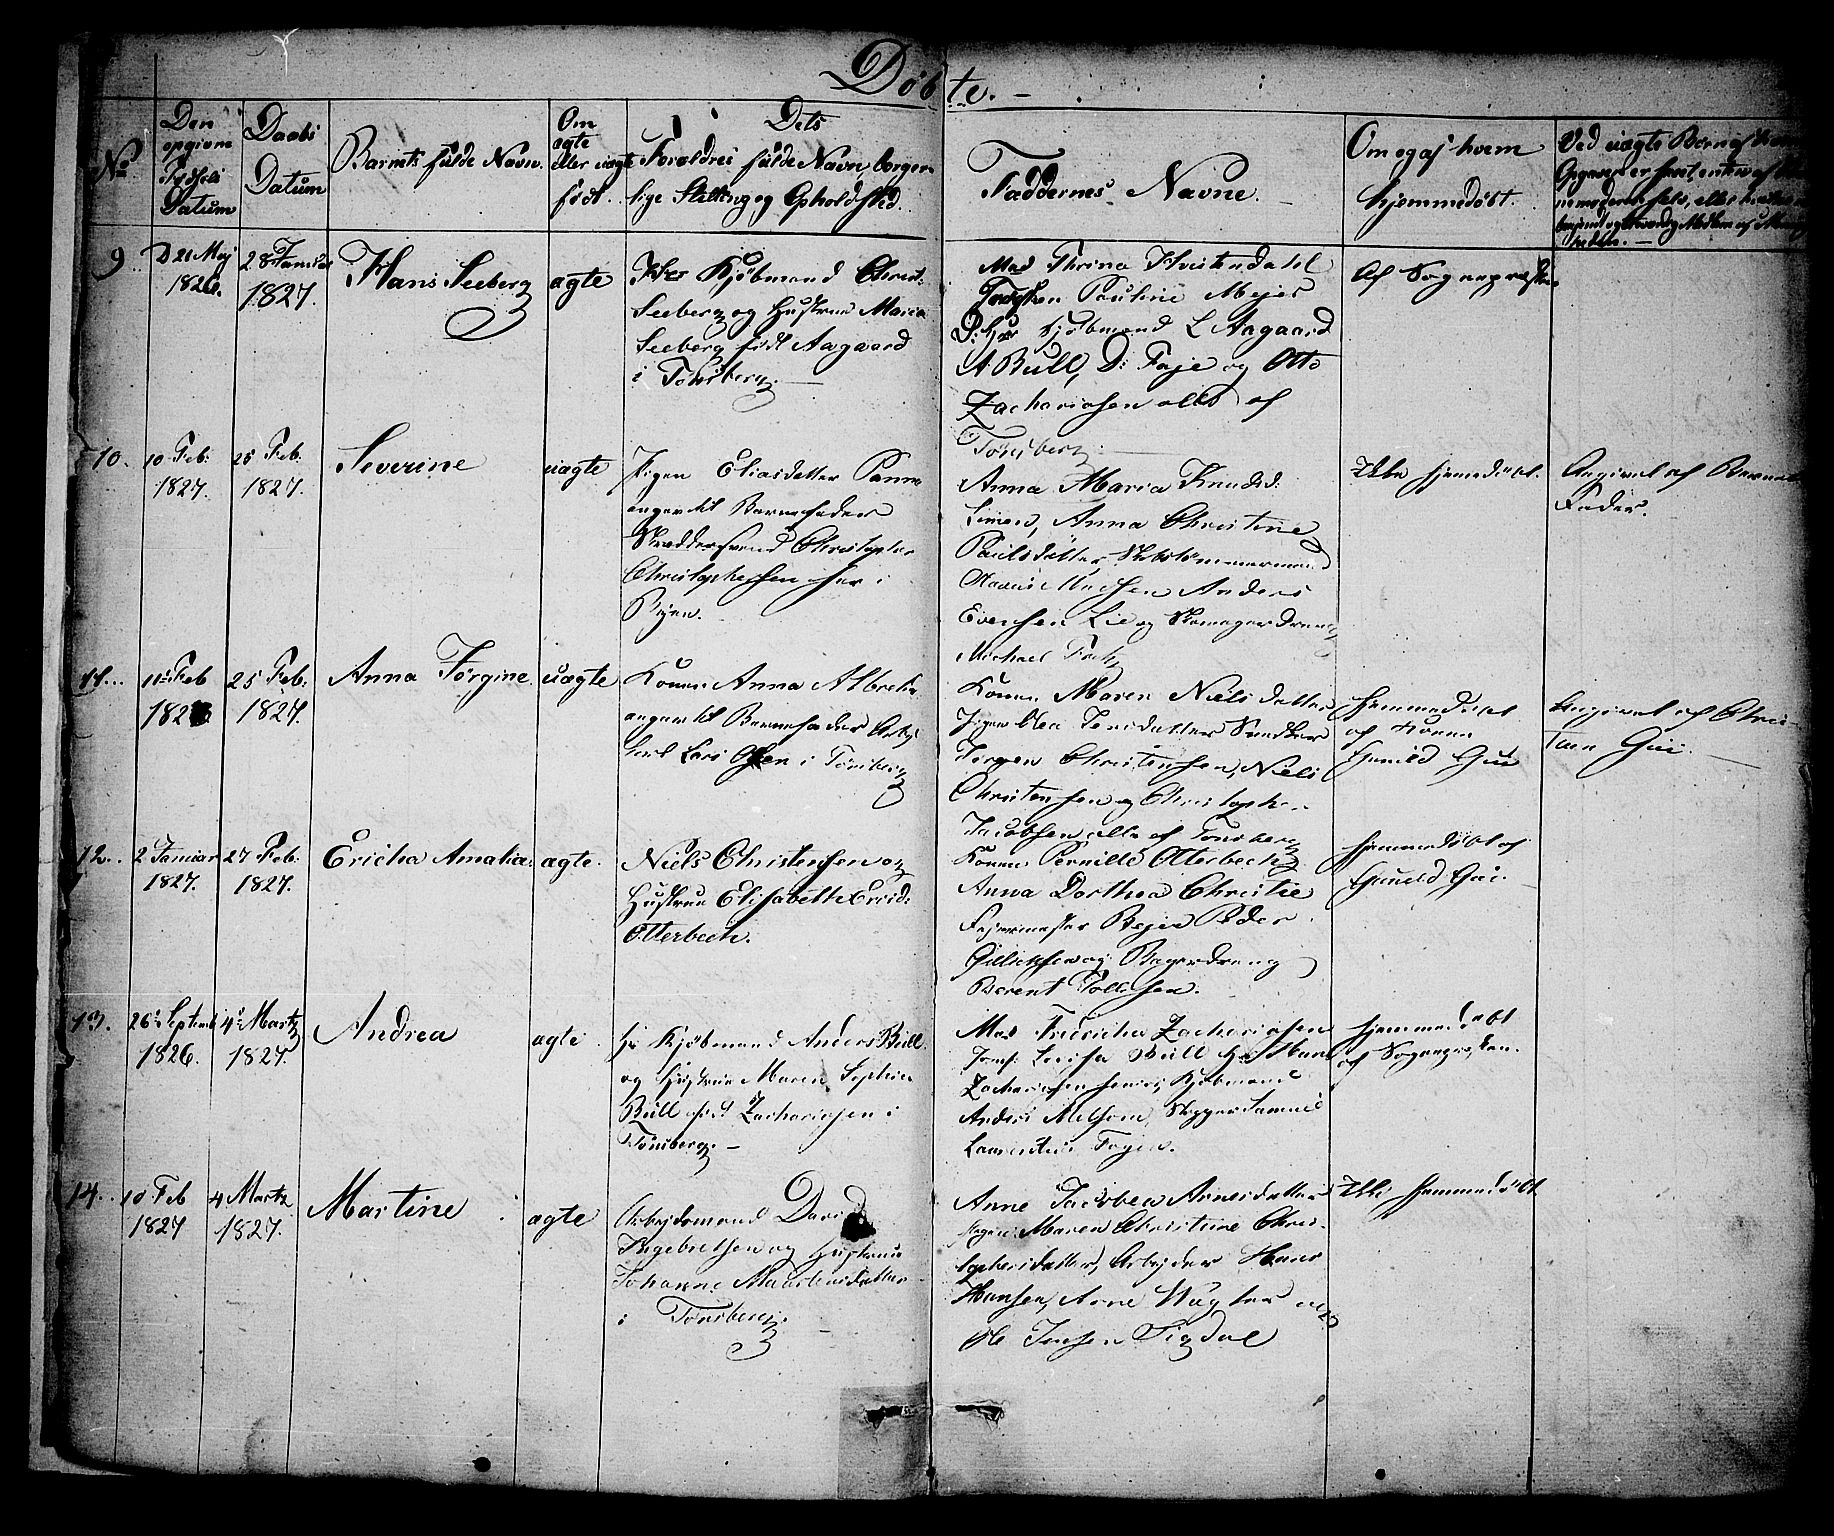 Døbte.
No
Den opgivne Fødsels Datum
Daabs Datum
Barnets fulde Navn.
Om ægte eller uægte født.
Dets Forældres fulde Navn, borgerlige Stilling og Opholdsted.
Faddernes Navne.
Om og af hvem hjemmedøbt.
Ved uægte Børn af hvem Opgaven er skeet enten af
9
D 21 Maj 1826.
28 Januar 1827.
Hans Seeberg
ægte
Kjøbmand Christ:
Seeberg og Hustrue Maria
Seeberg født Aagaard
i Tønsberg.
Mad Thrina Hvistendahl
Pauline Mejer
Kjøbmand L Aagaard
A Bull, D: Faje og Otto
Zachariasen alle af
Tønsberg
Af Sognepræsten
10.
10 Feb: 1827.
25 Feb: 1827.
Severine
uægte
Pigen Eliasdatter
angivet Barnefader
Skræddersvend Christopher
Christophersen her i
Byen.
Anna Maria Knudsd:
Simen, Anna Christine
Paulsdatter, Skibstømmermand
Madsen Anders
Evensen Lie og Skomagerdreng
Michael
Ikke hjemmedøbt.
Angivet af Barnets
Fader.
11.
11 Feb 1827
25 Feb: 1827.
Anna Jørgine
uægte
Konen Anna Albrechts
angivet Barnefader
Lars Olsen i Tønsberg
Konen Maren Nielsdatter
Pigen
Jørgen Christensen, Niels
Christensen og Christopher
Jacobsen alle af Tønsberg
Hjemmedøbt
af Konen
Gunild Gui
Angivet af Chris-
tian Gui.
12.
2 Januar 1827.
27 Feb: 1827.
Ericha Amalia
ægte.
Niels Christensen og
Hustrue Elisabeth Ericsd:
Otterbech.
Konen Pernille Otterbech
Anna Dorthea Christie
Fejermester Peder
Gulichsen og Bagerdreng
Berent Tollefsen.
Hjemmedøbt af
Gunild Gui.
13.
26 Septemb 1826.
4 Martz 1827.
Andrea
ægte
Hr Kjøbmand Anders Bull
og Hustrue Maren Sophie
Bull født Zachariasen i
Tønsberg. —
Mad Fridericha Zachariasen
Jomf: Lovisa Bull Hr Hans
Zachariasen Kjøbmand
Anders Melsom, Skipper Samuel
Laurentius Fajes.
Hjemmedøbt
af Sognepræsten.
14.
10 Feb 1827
4 Martz 1827.
Martine
ægte
Arbejdsmand David
Ingebretsen og Hustrue
Johanne Maartensdatter
i Tønsberg.
Anne Jacobea Arnesdatter
Pigen Maren Christine Chris-
tophersdatter, Arbejder Hans
Hansen, Arne og
Ole Jensen Sigdal
Ikke hjemmedøbt